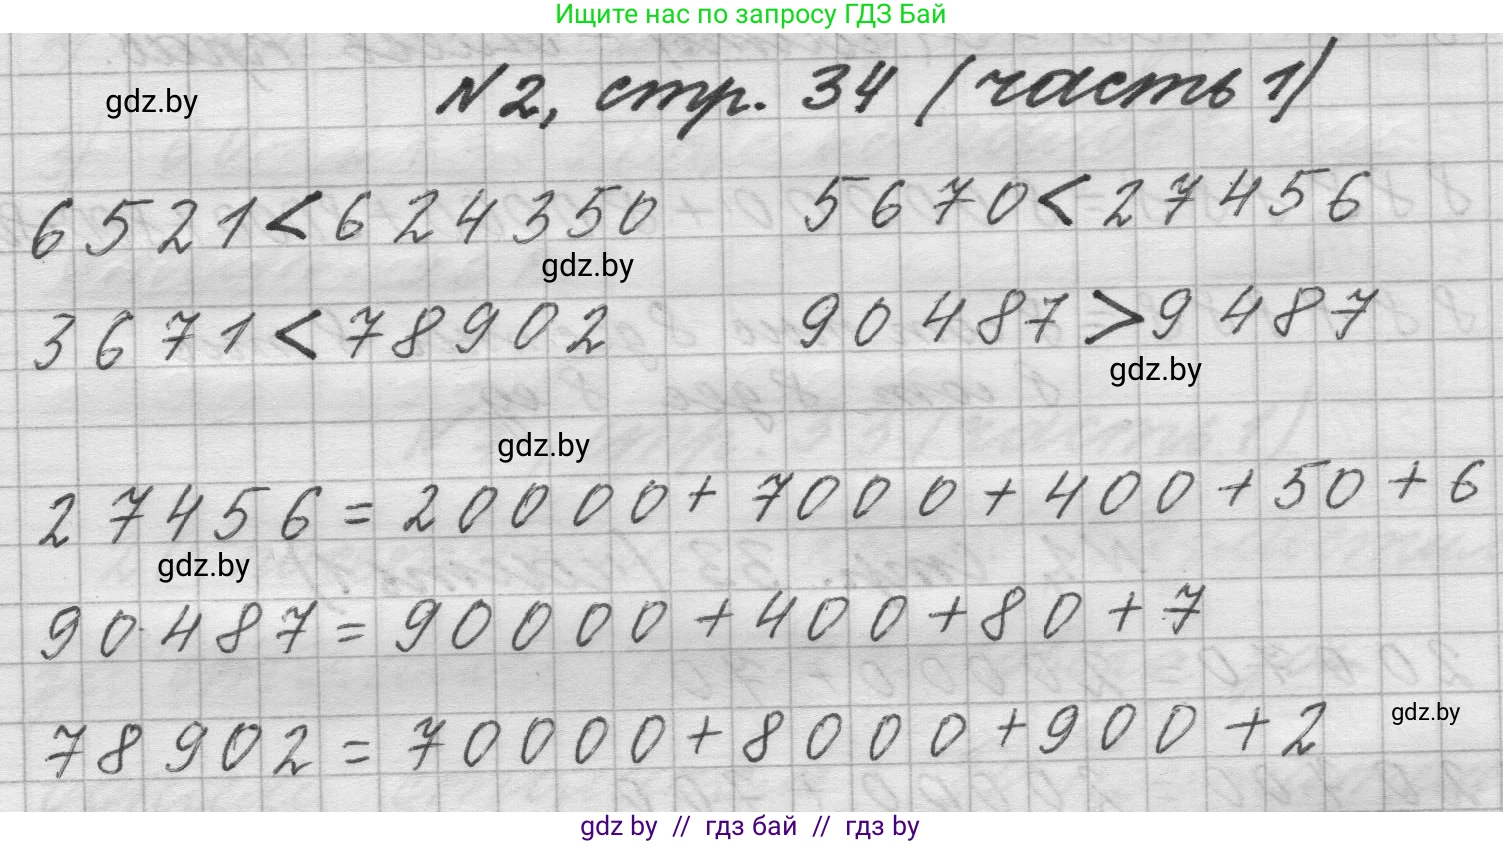 Ищите нас по запросу ГДЗ Бай
№2, стр. 34 (часть 1)
gdz.by
6521<624350 5670<27456
gdz.by
3671<78902 90487>9487
gdz.by
gdz.by
27456=20000+7000+400+50+6
gdz.by
90487=90000+400+80+7
78902=70000+8000+900+2
gdz.by
gdz by // гдз бай // гдз by